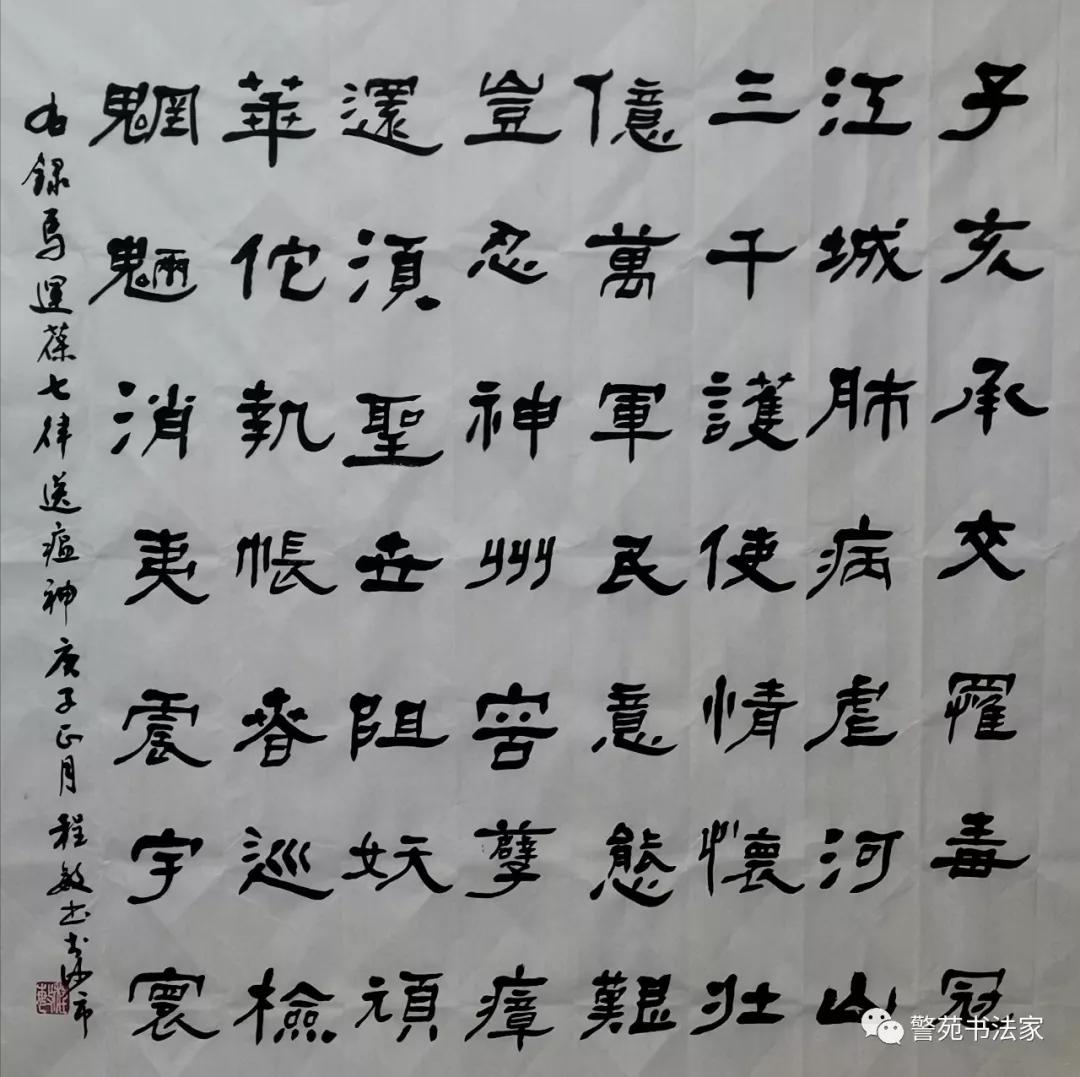 子亥承交罹毒冠
江城肺病虐河山
三千護使情懷壮
億萬軍民意態艱
豈忍神州害孽瘴
還須聖世阻妖頑
華佗執帳春巡檢
魍魎消夷震宇寰
右録馬運葆七律送瘟神庚子正月程敏书於沙市
警苑书法家